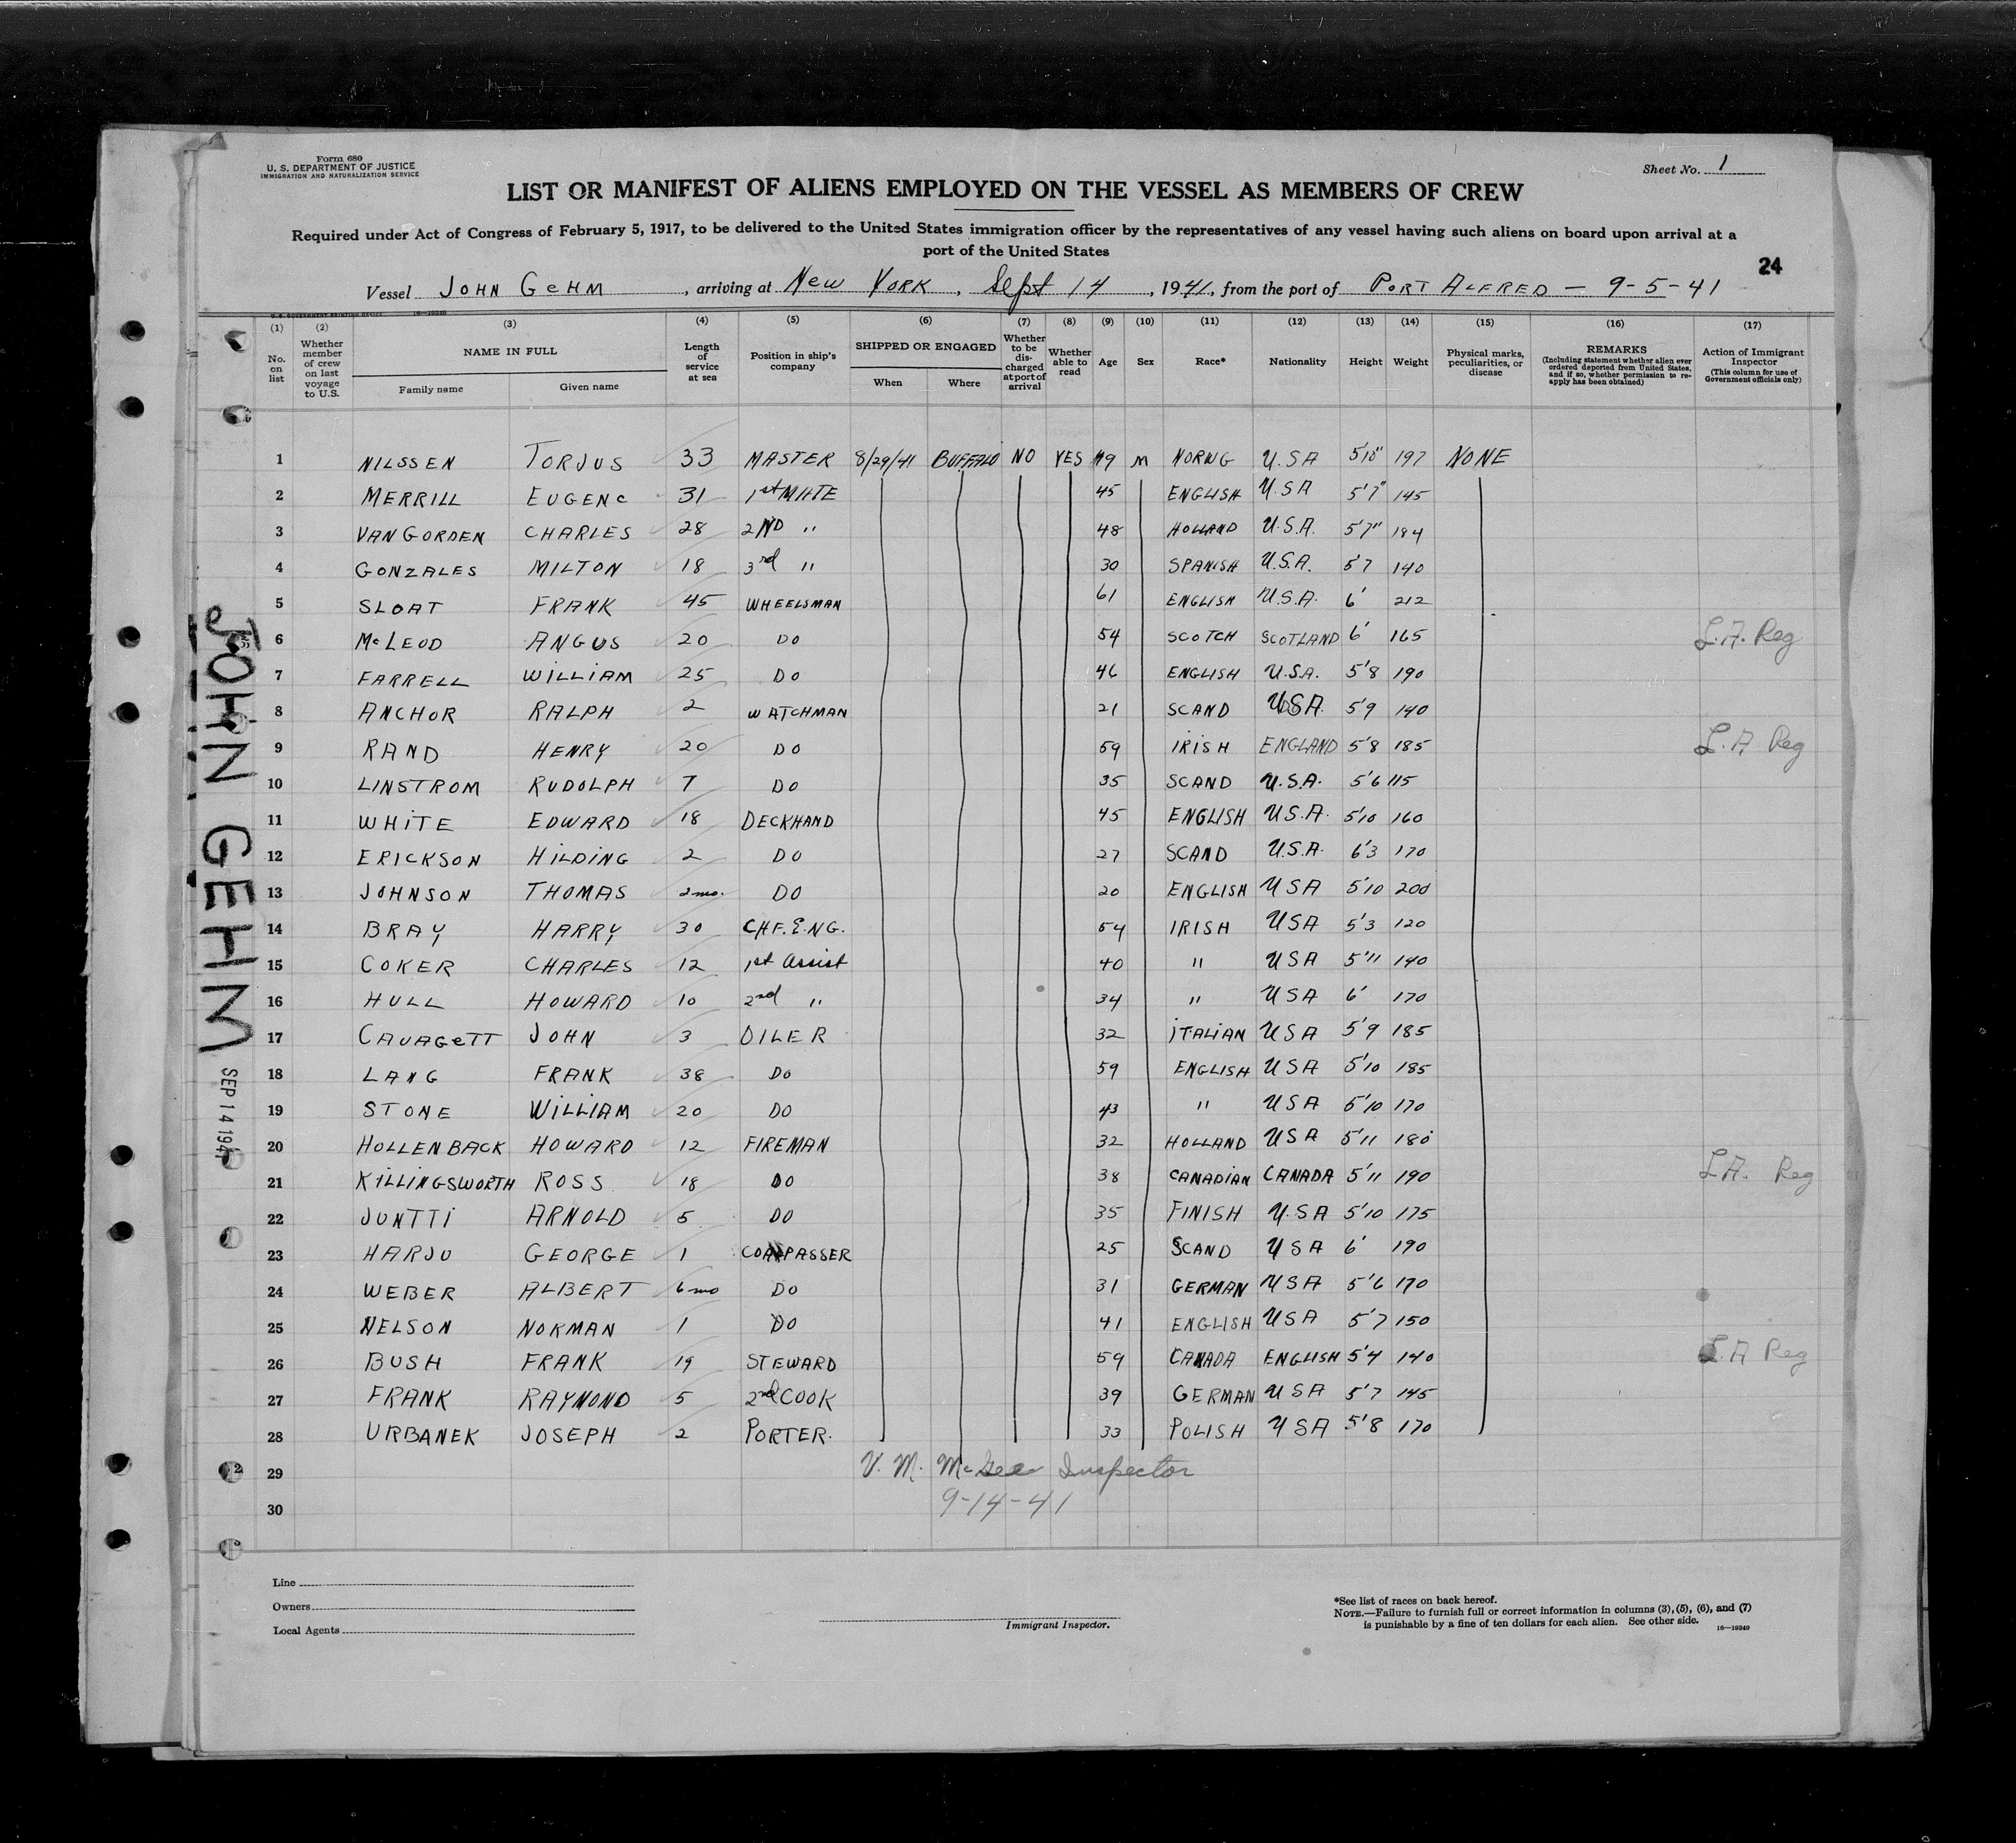 Form 680
U. S. DEPARTMENT OF JUSTICE
IMMIGRATION AND NATURALIZATION SERVICE
Sheet No. 1
LIST OR MANIFEST OF ALIENS EMPLOYED ON THE VESSEL AS MEMBERS OF CREW
Required under Act of Congress of February 5, 1917, to be delivered to the United States immigration officer by the representatives of any vessel having such aliens on board upon arrival at a
port of the United States
24
Vessel JOHN GeHM, arriving at New YORK, Sept 14, 1941, from the port of PORT ALFRED — 9-5-41
(1) (2) (3) (4) (5) (6) (7) (8) (9) (10) (11) (12) (13) (14) (15) (16) (17)
No. on list
Whether member of crew on last voyage to U.S.
NAME IN FULL
Family name Given name
Length of service at sea
Position in ship's company
SHIPPED OR ENGAGED
When Where
Whether to be discharged at port of arrival
Whether able to read
Age
Sex
Race*
Nationality
Height
Weight
Physical marks, peculiarities, or disease
REMARKS
(Including statement whether alien ever ordered deported from United States, and if so, whether permission to reapply has been obtained)
Action of Immigrant Inspector
(This column for use of Government officials only)
1 NILSSEN TORJUS 33 MASTER 8/29/41 BUFFALO NO YES 49 M NORWG U.SA 5'10" 197 NONE
2 MERRILL EUGENe 31 1st MATE 45 ENGLISH U.SA 5'7" 145
3 VAN GORDEN CHARLES 28 2ND " 48 HOLLAND U.S.A. 5'7" 184
4 GONZALES MILTON 18 3rd " 30 SPANISH U.S.A. 5'7 140
5 SLOAT FRANK 45 WHEELSMAN 61 ENGLISH U.S.A. 6' 212
6 McLEOD ANGUS 20 DO 54 SCOTCH SCOTLAND 6' 165 L.A. Reg
7 FARRELL WILLIAM 25 DO 46 ENGLISH U.S.A. 5'8 190
8 ANCHOR RALPH 2 WATCHMAN 21 SCAND USA. 5'9 140
9 RAND HENRY 20 DO 59 IRISH ENGLAND 5'8 185 L.A Reg
10 LINSTROM RUDOLPH 7 DO 35 SCAND U.S.A. 5'6 115
11 WHITE EDWARD 18 DECKHAND 45 ENGLISH U.S.A. 5'10 160
12 ERICKSON HILDING 2 DO 27 SCAND U.S.A. 6'3 170
13 JOHNSON THOMAS 2mo. DO 20 ENGLISH USA 5'10 200
14 BRAY HARRY 30 CHF. ENG. 54 IRISH USA 5'3 120
15 COKER CHARLES 12 1st Assist 40 " USA 5'11 140
16 HULL HOWARD 10 2nd " 34 " USA 6' 170
17 CAVAGeTT JOHN 3 OILER 32 ITALIAN USA 5'9 185
18 LANG FRANK 38 DO 59 ENGLISH USA 5'10 185
19 STONE WILLIAM 20 DO 43 " USA 5'10 170
20 HOLLENBACK HOWARD 12 FIREMAN 32 HOLLAND USA 5'11 180
21 KILLINGSWORTH ROSS 18 DO 38 CANADIAN CANADA 5'11 190 L.A. Reg
22 JUNTTI ARNOLD 5 DO 35 FINISH U.SA 5'10 175
23 HARJU GEORGE 1 COALPASSER 25 SCAND USA 6' 190
24 WEBER ALBERT 6mo DO 31 GERMAN USA 5'6 170
25 NELSON NORMAN 1 DO 41 ENGLISH USA 5'7 150
26 BUSH FRANK 19 STEWARD 59 CANADA ENGLISH 5'4 140 L.A Reg
27 FRANK RAYMOND 5 2nd COOK 39 GERMAN USA 5'7 145
28 URBANEK JOSEPH 2 PORTER. 33 POLISH USA 5'8 170
29 V. M. McGee Inspector
30 9-14-41
JOHN GEHM
SEP 14 1941
Line
Owners
Local Agents
Immigrant Inspector.
*See list of races on back hereof.
NOTE.—Failure to furnish full or correct information in columns (3), (5), (6), and (7)
is punishable by a fine of ten dollars for each alien. See other side.
16—19349